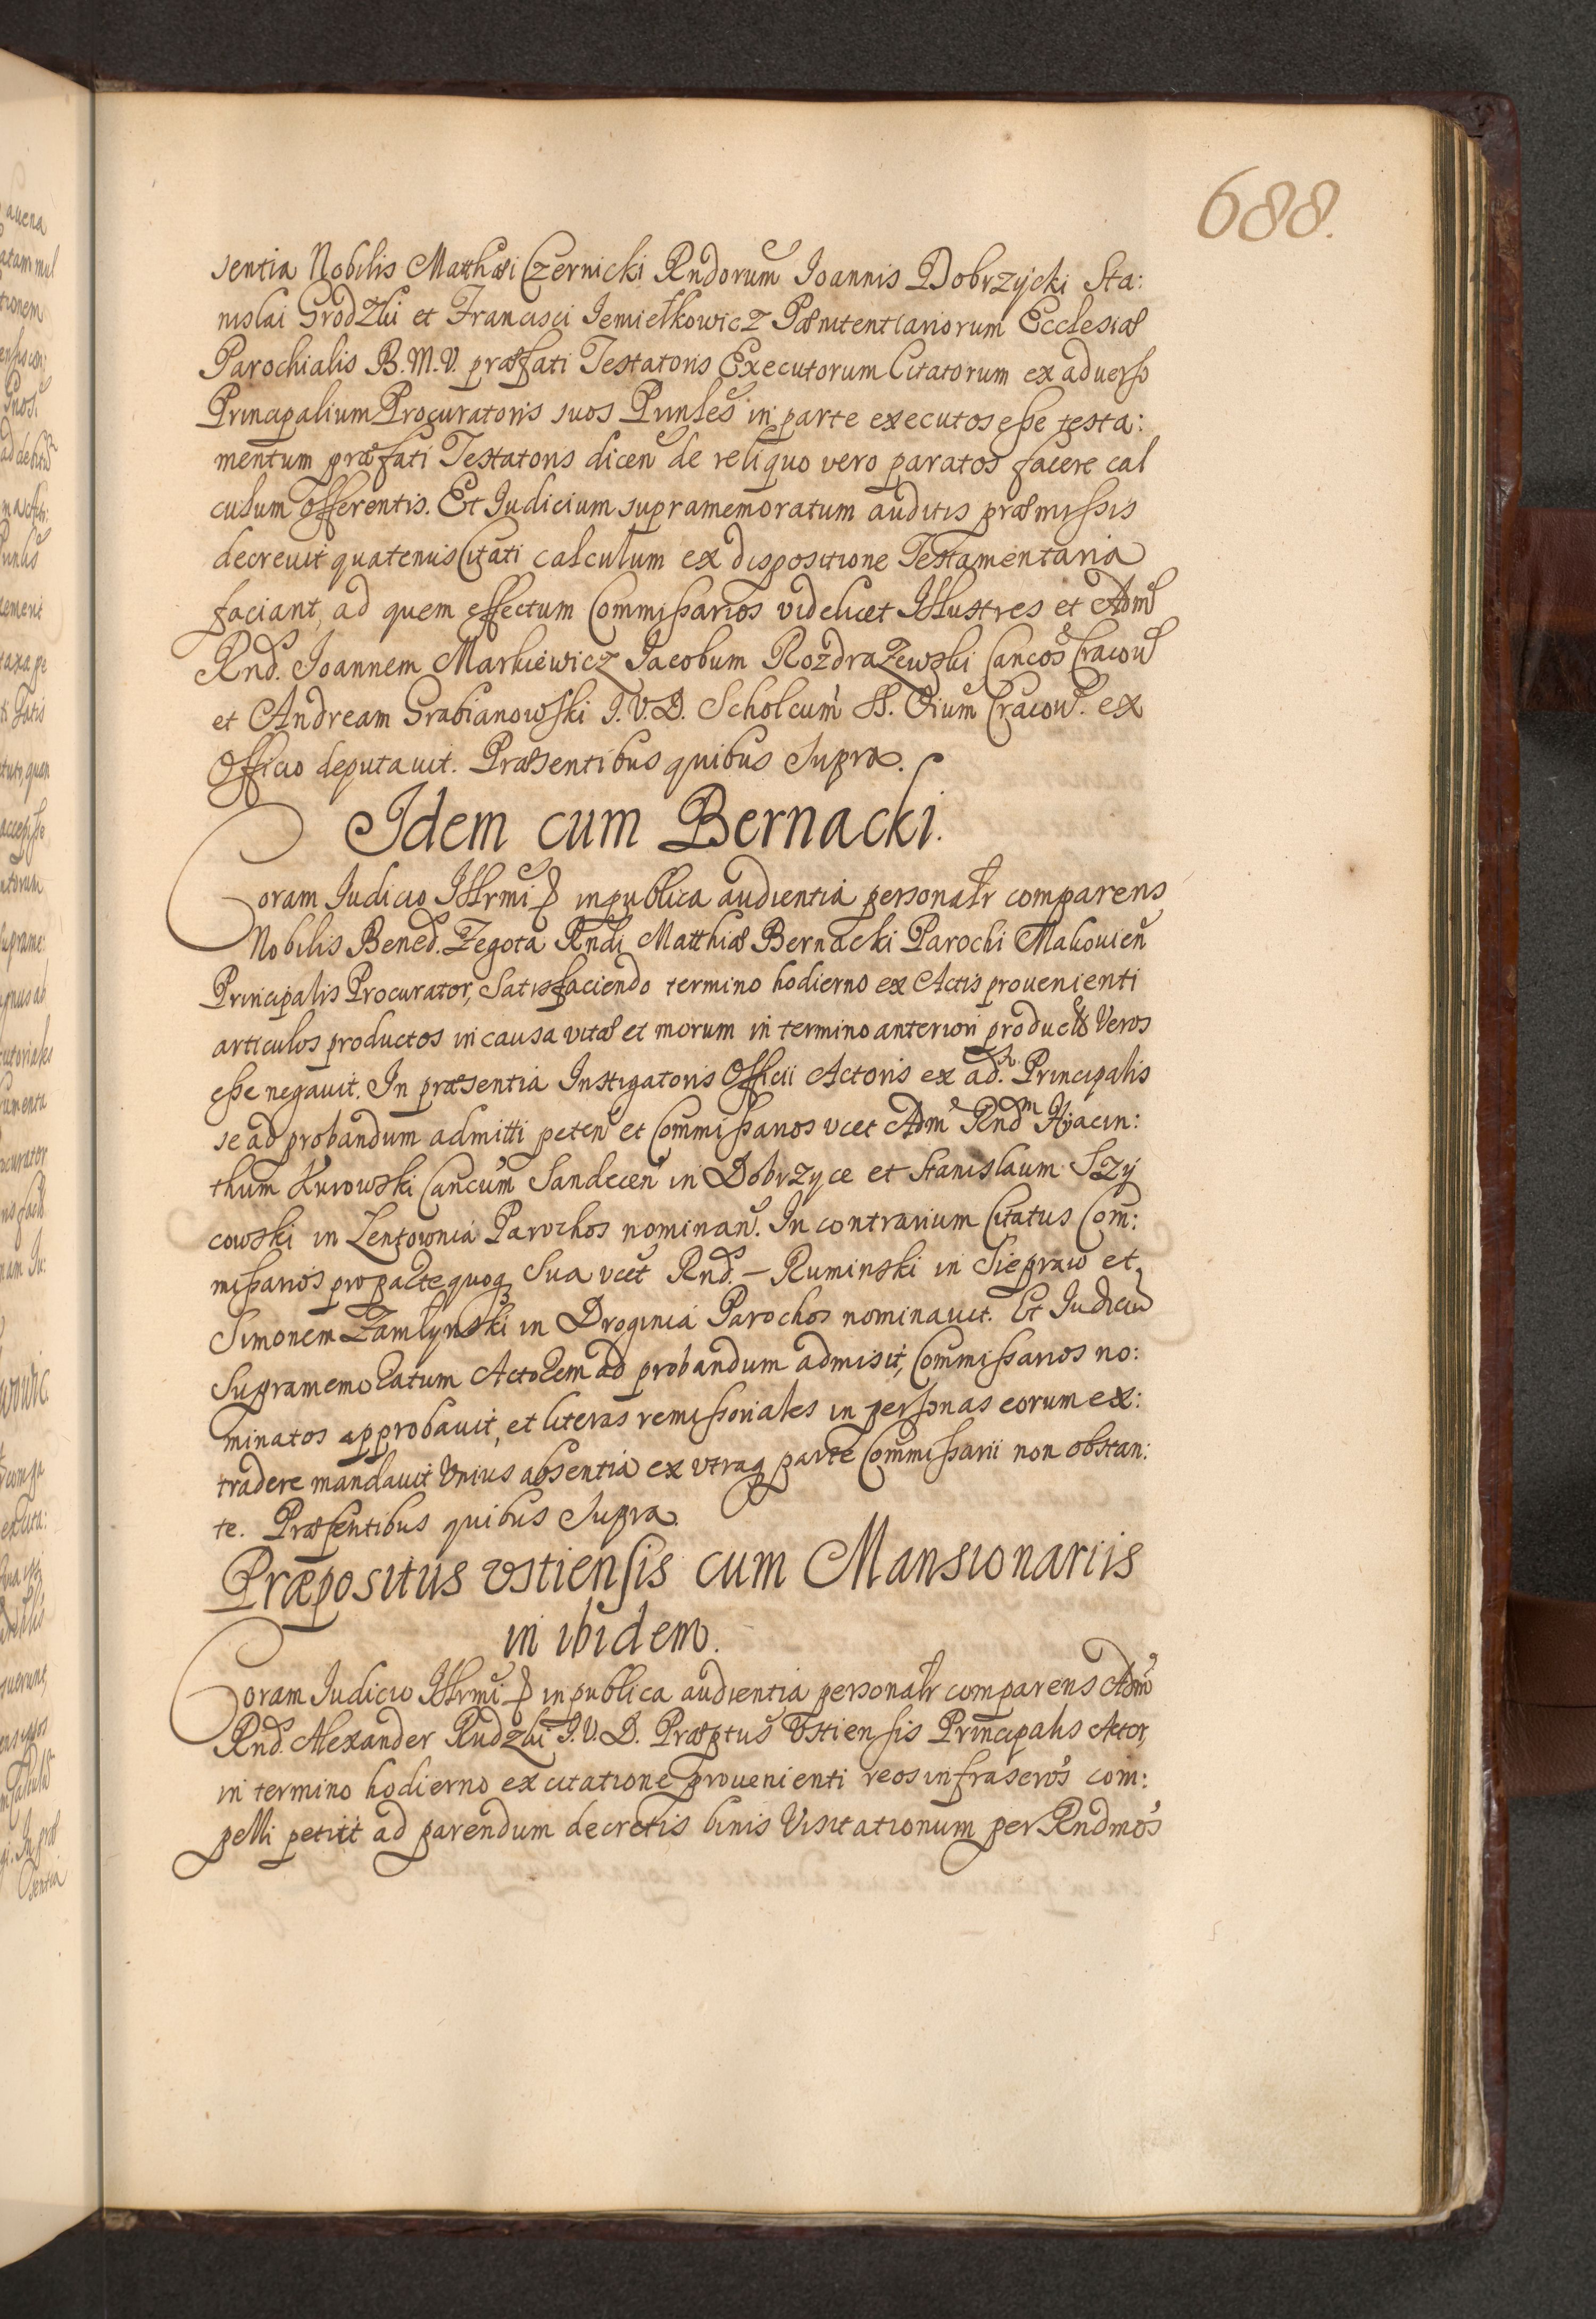 688.
sentia Nobilis Matthæi Czernicki Rndorum Ioannis Dobrzycki Sta:
nislai Grodzki et Francisci Iemiełkowicz Pænitentiariorum Ecclesiæ
Parochialis B. M. V. præfati Testatoris Executorum Citatorum ex aduerso
Principalium Procuratoris suos Pnnles in parte executos esse testa:
mentum præfati Testatoris dicen de reliquo vero paratos facere cal
culum offerentis. Et Iudicium supramemoratum auditis præmissis
decreuit quatenus Citati calculum ex dispositione Testamentaria
faciant, ad quem effectum Commissarios videlicet Illustres et Adm
Rnd. Ioannem Markiewicz Iacobum Rozdrazewski Cancos Cracou
et Andream Grabianowski I. V. D. Scholcum SS. Oium Cracou. ex
Officio deputauit. Præsentibus quibus Supra.
Idem cum Bernacki.
Coram Iudicio Illrmi in publica audientia personalr comparens
Nobilis Bened. Zegota Rndi Matthiæ Bernacki Parochi Makouien
Principalis Procurator, Satisfaciendo termino hodierno ex Actis prouenienti
articulos productos in causa vitæ et morum in termino anteriori productos Veros
esse negauit. In præsentia Instigatoris Officii Actoris ex ad. Principalis
se ad probandum admitti peten et Commissarios vcet Adm Rndm Hyacin:
thum Kurowski Cancum Sandecen in Dobrzyce et Stanislaum Szy
cowski in Zentownia Parochos nominan. In contrarium Citatus Com:
missarios pro parte quoq Sua vcet Rnd. — Ruminski in Siepraw et
Simonem Zamlynski in Droginia Parochos nominauit. Et Iudiciu
Supramemoratum Actorem ad probandum admisit, Commissarios no:
minatos approbauit, et literas remissoriales in personas eorum ex:
tradere mandauit Vnius absentia ex vtraq parte Commissarii non obstan:
te. Præsentibus quibus Supra.
Præpositus vstiensis cum Mansionariis
in ibidem.
Coram Iudicio Illrmi in publica audientia personalr comparens Adm
Rnd. Alexander Rudzki I. V. D. Præptus Vstiensis Principalis Actor,
in termino hodierno ex citatione prouenienti reos infraseros com:
pelli petiit ad parendum decretis binis Visitationum per Rndmos